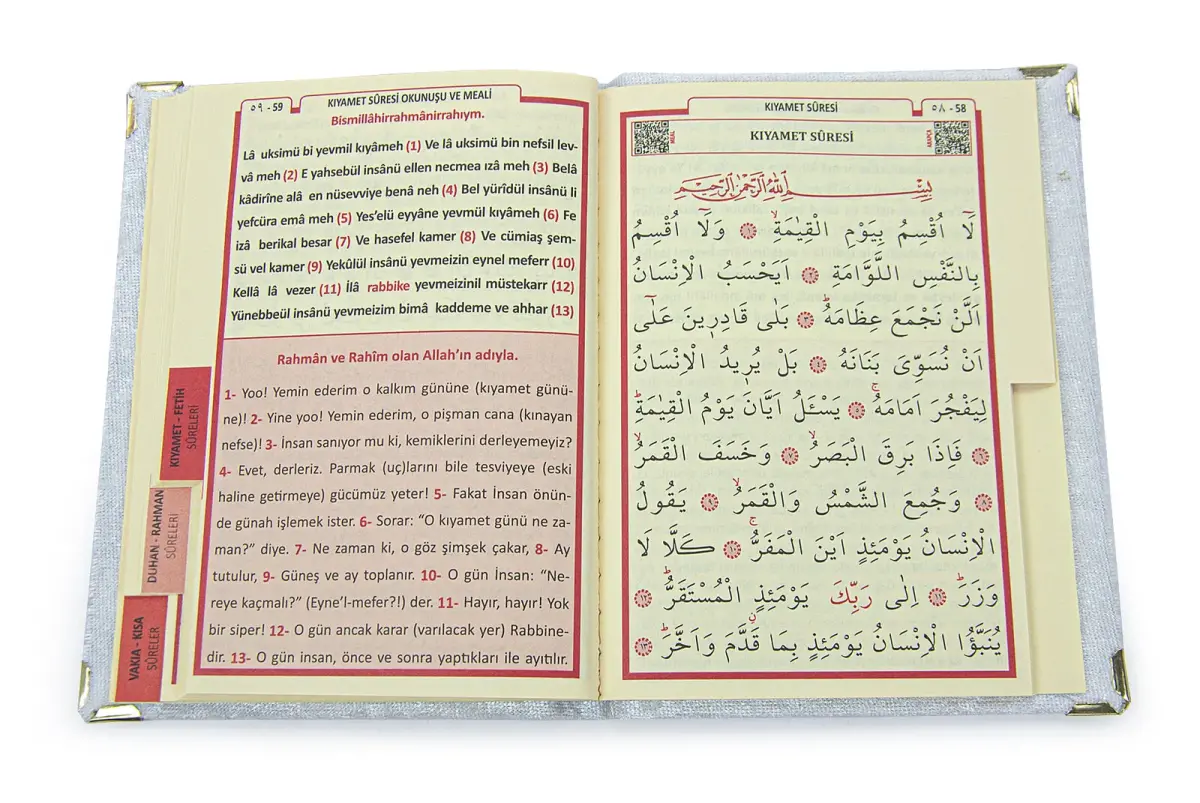 ٥٩ - 59
KIYAMET SÛRESİ OKUNUŞU VE MEALİ
Bismillâhirrahmânirrahıym.
Lâ uksimü bi yevmil kıyâmeh (1) Ve lâ uksimü bin nefsil lev-
vâ meh (2) E yahsebül insânü ellen necmea ızâ meh (3) Belâ
kâdirîne alâ en nüsevviye benâ neh (4) Bel yürîdül insânü li
yefcüra emâ meh (5) Yes’elü eyyâne yevmül kıyâmeh (6) Fe
izâ berikal besar (7) Ve hasefel kamer (8) Ve cümiaş şem-
sü vel kamer (9) Yekûlül insânü yevmeizin eynel meferr (10)
Kellâ lâ vezer (11) İlâ rabbike yevmeizinil müstekarr (12)
Yünebbeül insânü yevmeizim bimâ kaddeme ve ahhar (13)
Rahmân ve Rahîm olan Allah’ın adıyla.
1- Yoo! Yemin ederim o kalkım gününe (kıyamet günü-
ne)! 2- Yine yoo! Yemin ederim, o pişman cana (kınayan
nefse)! 3- İnsan sanıyor mu ki, kemiklerini derleyemeyiz?
4- Evet, derleriz. Parmak (uç)larını bile tesviyeye (eski
haline getirmeye) gücümüz yeter! 5- Fakat İnsan önün-
de günah işlemek ister. 6- Sorar: “O kıyamet günü ne za-
man?” diye. 7- Ne zaman ki, o göz şimşek çakar, 8- Ay
tutulur, 9- Güneş ve ay toplanır. 10- O gün İnsan: “Ne-
reye kaçmalı?” (Eyne’l-mefer?!) der. 11- Hayır, hayır! Yok
bir siper! 12- O gün ancak karar (varılacak yer) Rabbine-
dir. 13- O gün insan, önce ve sonra yaptıkları ile ayıtılır.
KIYAMET - FETİH
SÛRELERİ
DUHAN - RAHMAN
SÛRELERİ
VAKIA - KISA
SÛRELER
KIYAMET SÛRESİ
٥٨ - 58
MEAL
KIYAMET SÛRESİ
ARAPÇA
بِسْمِ اللّٰهِ الرَّحْمٰنِ الرَّحِيمِ
لَٓا اُقْسِمُ بِيَوْمِ الْقِيٰمَةِۙ ﴿١﴾ وَلَٓا اُقْسِمُ
بِالنَّفْسِ اللَّوَّامَةِ ﴿٢﴾ اَيَحْسَبُ الْاِنْسَانُ
اَلَّنْ نَجْمَعَ عِظَامَهُۜ ﴿٣﴾ بَلٰى قَادِر۪ينَ عَلٰٓى
اَنْ نُسَوِّيَ بَنَانَهُ ﴿٤﴾ بَلْ يُر۪يدُ الْاِنْسَانُ
لِيَفْجُرَ اَمَامَهُۚ ﴿٥﴾ يَسْـَٔلُ اَيَّانَ يَوْمُ الْقِيٰمَةِۜ
﴿٦﴾ فَاِذَا بَرِقَ الْبَصَرُۙ ﴿٧﴾ وَخَسَفَ الْقَمَرُۙ
﴿٨﴾ وَجُمِعَ الشَّمْسُ وَالْقَمَرُۙ ﴿٩﴾ يَقُولُ
الْاِنْسَانُ يَوْمَئِذٍ اَيْنَ الْمَفَرُّۚ ﴿١٠﴾ كَلَّا لَا
وَزَرَۜ ﴿١١﴾ اِلٰى رَبِّكَ يَوْمَئِذٍ الْمُسْتَقَرُّۜ ﴿١٢﴾
يُنَبَّؤُا الْاِنْسَانُ يَوْمَئِذٍ بِمَا قَدَّمَ وَاَخَّرَۜ ﴿١٣﴾